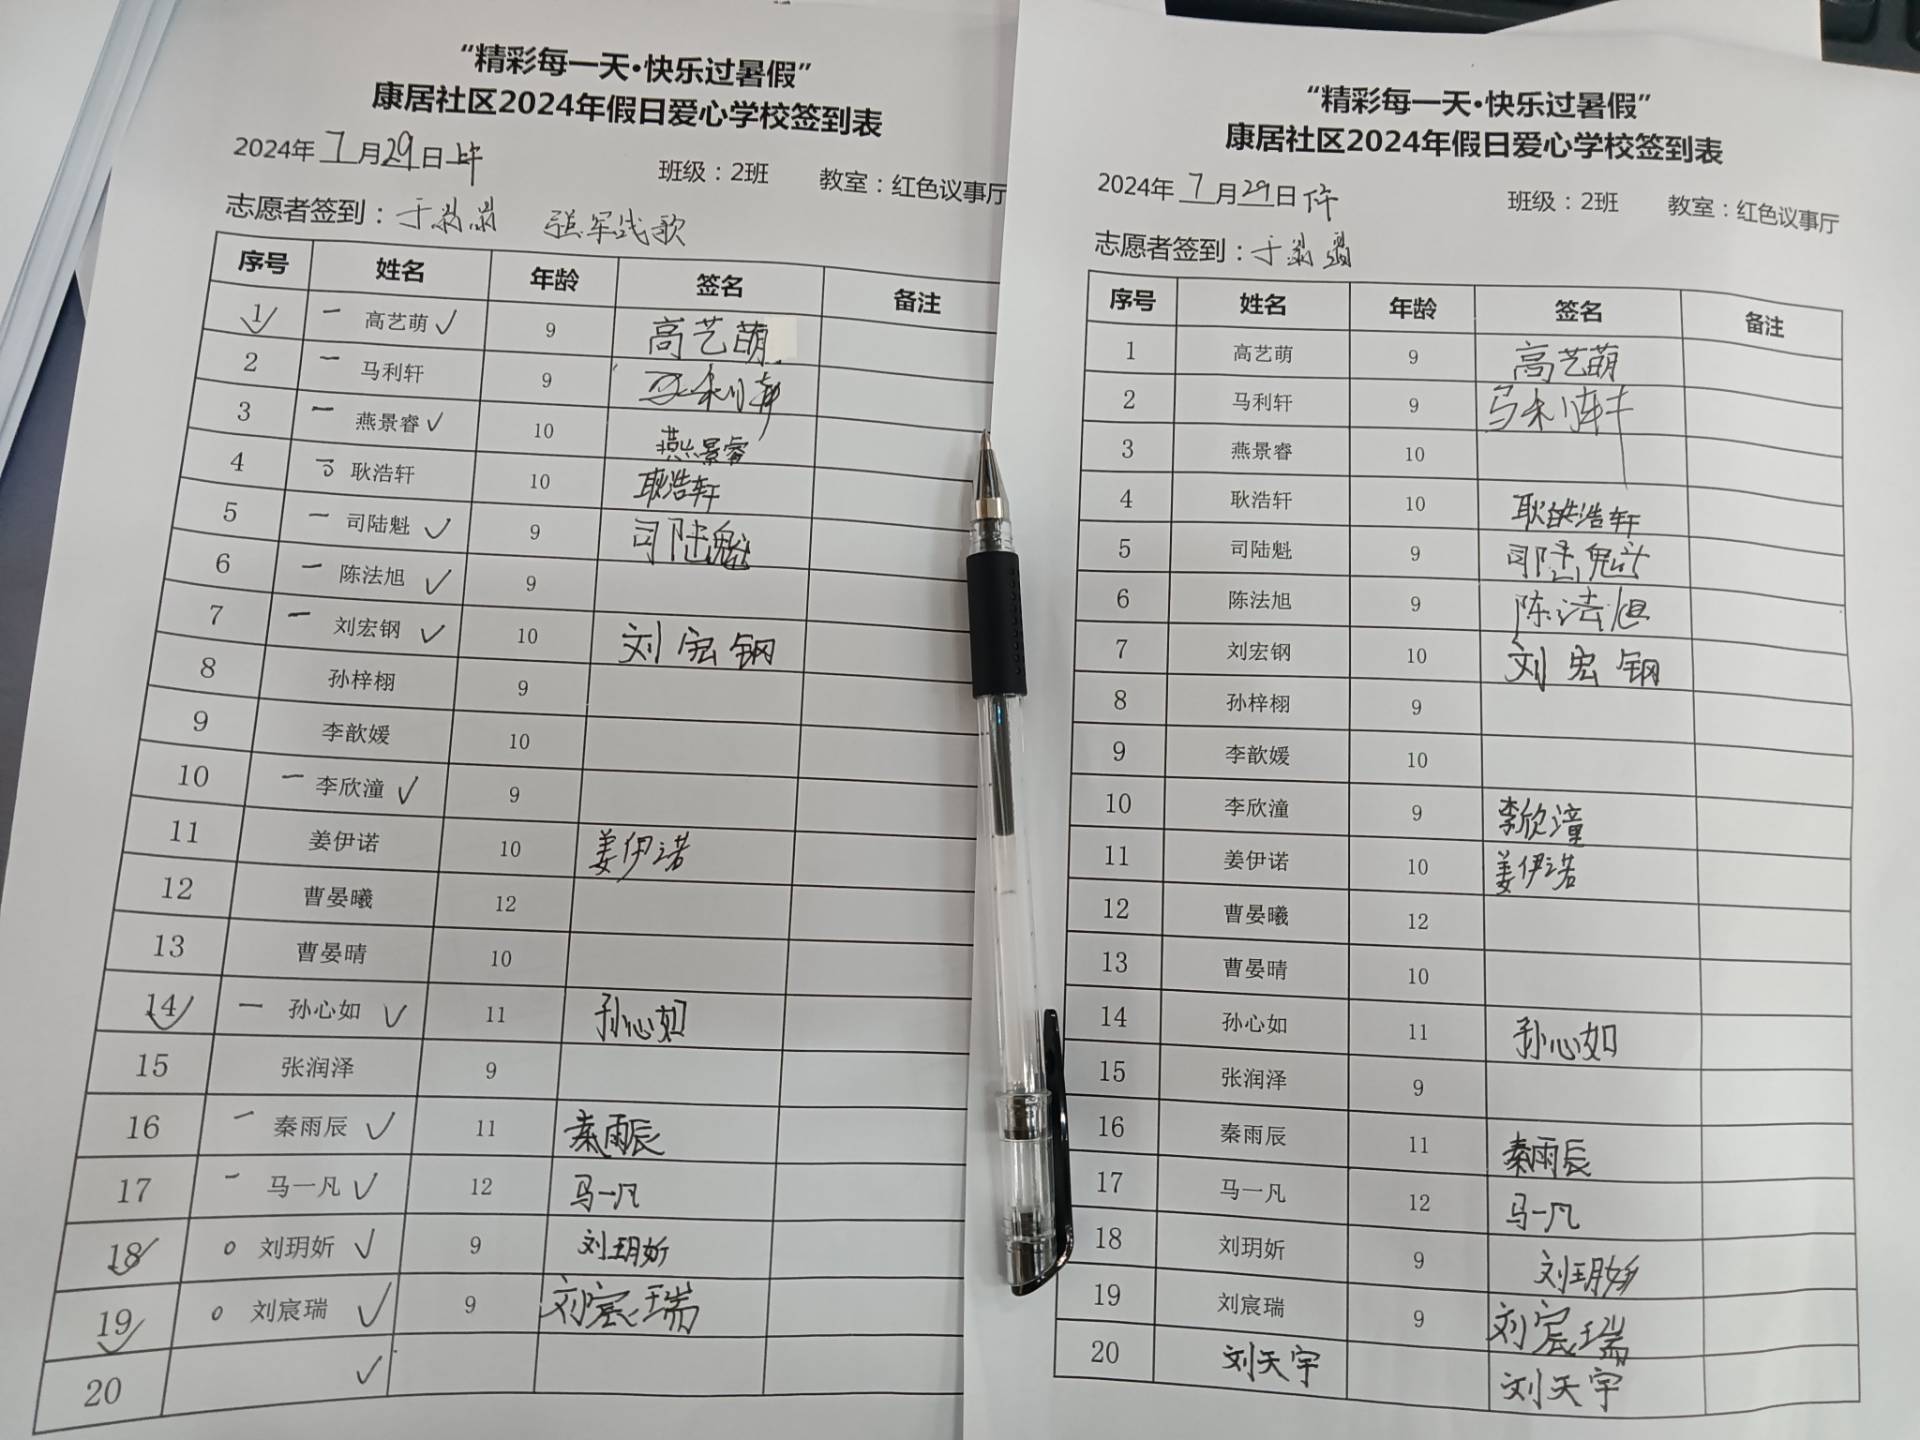 “精彩每一天·快乐过暑假”
康居社区2024年假日爱心学校签到表
2024年 7 月 29 日 上午 班级：2班 教室：红色议事厅
志愿者签到：
序号 姓名 年龄 签名 备注
1 高艺萌 9 高艺萌
2 马利轩 9 马利轩
3 燕景睿 10 燕景睿
4 耿浩轩 10 耿浩轩
5 司陆魁 9 司陆魁
6 陈法旭 9
7 刘宏钢 10 刘宏钢
8 孙梓栩 9
9 李歆媛 10
10 李欣潼 9
11 姜伊诺 10 姜伊诺
12 曹晏曦 12
13 曹晏晴 10
14 孙心如 11 孙心如
15 张润泽 9
16 秦雨辰 11 秦雨辰
17 马一凡 12 马一凡
18 刘玥妡 9 刘玥妡
19 刘宸瑞 9 刘宸瑞
20
“精彩每一天·快乐过暑假”
康居社区2024年假日爱心学校签到表
2024年 7 月 29 日 班级：2班 教室：红色议事厅
志愿者签到：
序号 姓名 年龄 签名 备注
1 高艺萌 9 高艺萌
2 马利轩 9 马利轩
3 燕景睿 10
4 耿浩轩 10 耿浩轩
5 司陆魁 9 司陆魁
6 陈法旭 9 陈法旭
7 刘宏钢 10 刘宏钢
8 孙梓栩 9
9 李歆媛 10
10 李欣潼 9 李欣潼
11 姜伊诺 10 姜伊诺
12 曹晏曦 12
13 曹晏晴 10
14 孙心如 11 孙心如
15 张润泽 9
16 秦雨辰 11 秦雨辰
17 马一凡 12 马一凡
18 刘玥妡 9 刘玥妡
19 刘宸瑞 9 刘宸瑞
20 刘天宇 刘天宇